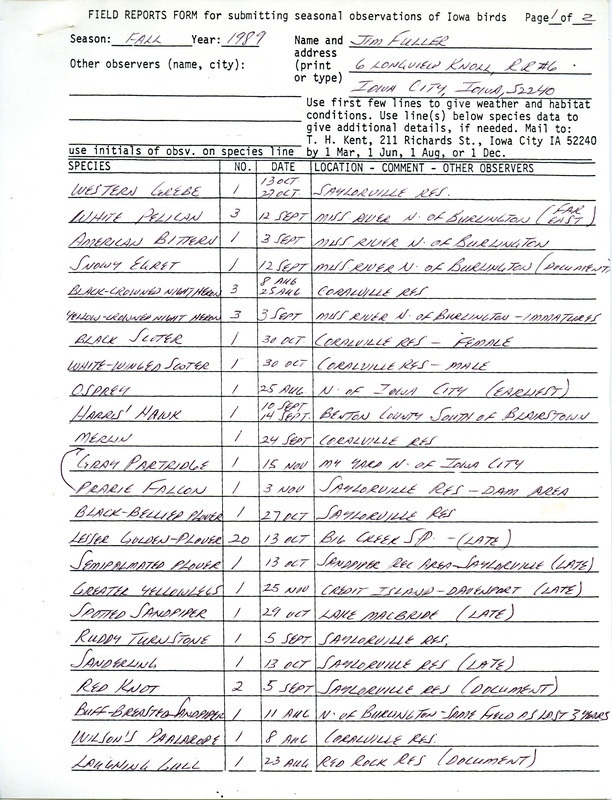 FIELD REPORTS FORM for submitting seasonal observations of Iowa birds Page 1 of 2
Season: FALL Year: 1989 Name and JIM FULLER
address
Other observers (name, city): (print 6 LONGVIEW KNOLL, RR#6
or type) IOWA CITY, IOWA, 52240
Use first few lines to give weather and habitat
conditions. Use line(s) below species data to
give additional details, if needed. Mail to:
T. H. Kent, 211 Richards St., Iowa City IA 52240
use initials of obsv. on species line by 1 Mar, 1 Jun, 1 Aug, or 1 Dec.
SPECIES NO. DATE LOCATION - COMMENT - OTHER OBSERVERS
WESTERN GREBE 1 13 OCT 27 OCT SAYLORVILLE RES.
WHITE PELICAN 3 12 SEPT MISS RIVER N. OF BURLINGTON (FAR EAST)
AMERICAN BITTERN 1 3 SEPT MISS RIVER N. OF BURLINGTON
SNOWY EGRET 1 12 SEPT MISS RIVER N. OF BURLINGTON (DOCUMENT)
BLACK-CROWNED NIGHT HERON 3 8 AUG 25 AUG CORALVILLE RES
YELLOW-CROWNED NIGHT HERON 3 3 SEPT MISS RIVER N. OF BURLINGTON - IMMATURES
BLACK SCOTER 1 30 OCT CORALVILLE RES - FEMALE
WHITE-WINGED SCOTER 1 30 OCT CORALVILLE RES - MALE
OSPREY 1 25 AUG N. OF IOWA CITY (EARLIEST)
HARRIS' HAWK 1 10 SEPT 14 SEPT. BENTON COUNTY SOUTH OF BLAIRSTOWN
MERLIN 1 24 SEPT CORALVILLE RES
GRAY PARTRIDGE 1 15 NOV MY YARD N. OF IOWA CITY
PRARIE FALCON 1 3 NOV SAYLORVILLE RES - DAM AREA
BLACK-BELLIED PLOVER 1 27 OCT SAYLORVILLE RES
LESSER GOLDEN-PLOVER 20 13 OCT BIG CREEK SP. - (LATE)
SEMIPALMATED PLOVER 1 13 OCT SANDPIPER REC AREA - SAYLORVILLE (LATE)
GREATER YELLOWLEGS 1 25 NOV CREDIT ISLAND - DAVENPORT (LATE)
SPOTTED SANDPIPER 1 29 OCT LAKE MACBRIDE (LATE)
RUDDY TURNSTONE 1 5 SEPT. SAYLORVILLE RES.
SANDERLING 1 13 OCT SAYLORVILLE RES (LATE)
RED KNOT 2 5 SEPT SAYLORVILLE RES (DOCUMENT)
BUFF-BREASTED SANDPIPER 1 11 AUG N. OF BURLINGTON - SAME FIELD AS LAST 3 YEARS
WILSON'S PHALAROPE 1 8 AUG CORALVILLE RES.
LAUGHING GULL 1 23 AUG RED ROCK RES (DOCUMENT)